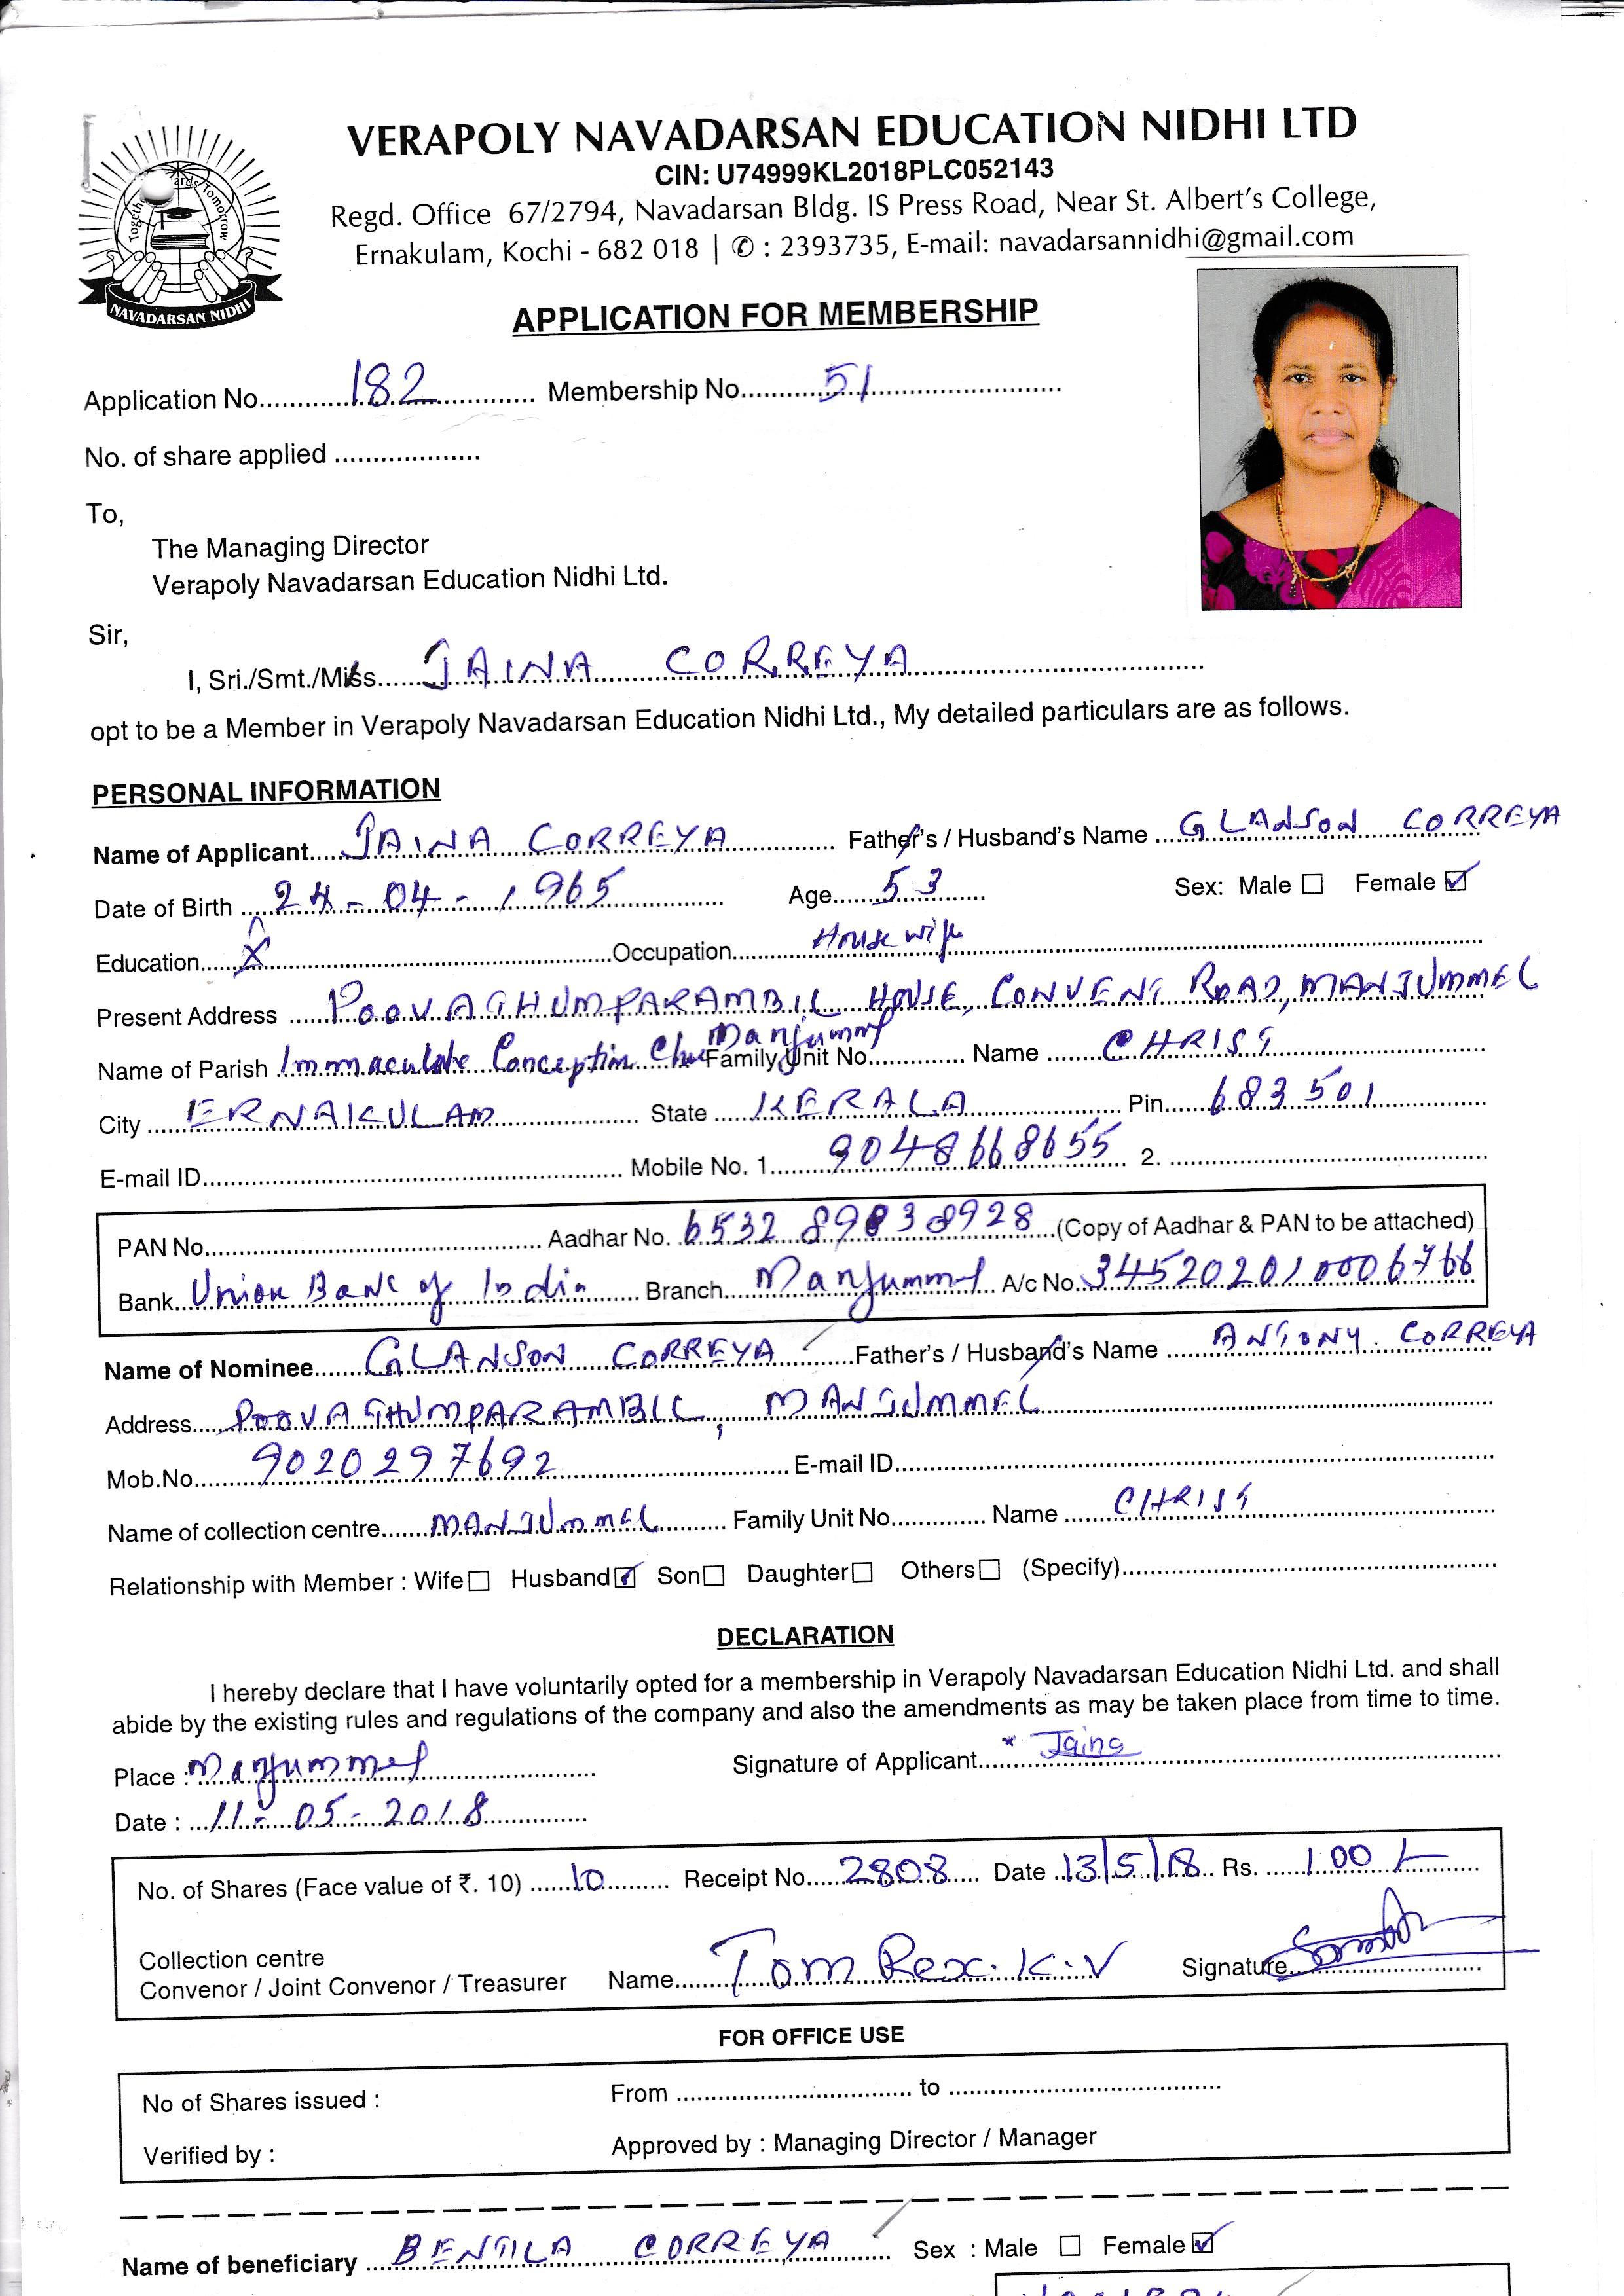 VERAPOLY NAVADARSAN EDUCATION NIDHI LTD
CIN: U74999KL2018PLC052143
Regd. Office 67/2794, Navadarsan Bldg. IS Press Road, Near St. Albert's College,
Ernakulam, Kochi - 682 018 | ✆ : 2393735, E-mail: navadarsannidhi@gmail.com
Tomorrow
NAVADARSAN NIDHI
APPLICATION FOR MEMBERSHIP
Application No. 182 Membership No. 51
No. of share applied
To,
The Managing Director
Verapoly Navadarsan Education Nidhi Ltd.
Sir,
I, Sri./Smt./Miss. JAINA CORREYA
opt to be a Member in Verapoly Navadarsan Education Nidhi Ltd., My detailed particulars are as follows.
PERSONAL INFORMATION
Name of Applicant JAINA CORREYA Father's / Husband's Name GLANSON CORREYA
Date of Birth 24-04-1965 Age 53 Sex: Male ☐ Female ☑
Education X Occupation House wife
Present Address POOVATHUMPARAMBIL HOUSE, CONVENT ROAD, MANJUMMEL
Name of Parish Immaculate Conception Manjummel Family Unit No. Name CHRIST
City ERNAKULAM State KERALA Pin 683501
E-mail ID Mobile No. 1. 9048668655 2.
PAN No. Aadhar No. 6532 8983 8928 (Copy of Aadhar & PAN to be attached)
Bank Union Bank of India Branch Manjummel A/c No. 345202010006766
Name of Nominee GLANSON CORREYA Father's / Husband's Name ANTONY. CORREYA
Address POOVATHUMPARAMBIL, MANJUMMEL
Mob.No. 9020297692 E-mail ID
Name of collection centre MANJUMMEL Family Unit No. Name CHRIST
Relationship with Member : Wife ☐ Husband ☑ Son ☐ Daughter ☐ Others ☐ (Specify)
DECLARATION
I hereby declare that I have voluntarily opted for a membership in Verapoly Navadarsan Education Nidhi Ltd. and shall
abide by the existing rules and regulations of the company and also the amendments as may be taken place from time to time.
Place : Manjummel Signature of Applicant Jaina
Date : 11-05-2018
No. of Shares (Face value of ₹. 10) 10 Receipt No. 2808 Date 13/5/18 Rs. 100/-
Collection centre
Convenor / Joint Convenor / Treasurer Name Tom Rex. K.V Signature
FOR OFFICE USE
No of Shares issued : From to
Verified by : Approved by : Managing Director / Manager
Name of beneficiary BENTILA CORREYA Sex : Male ☐ Female ☑